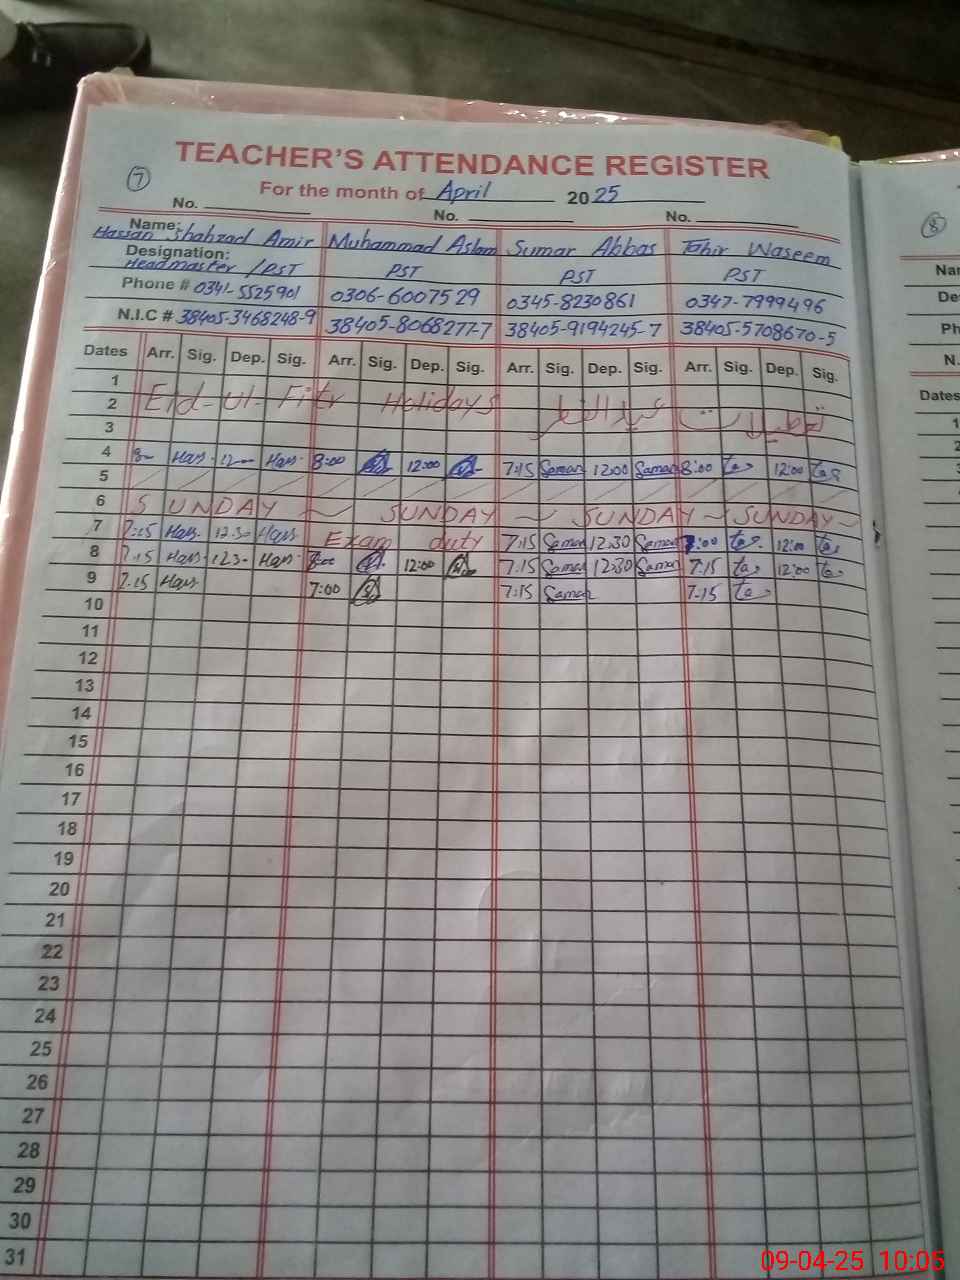 TEACHER'S ATTENDANCE REGISTER
7
For the month of April 2025
No. No. No.
8
Name: Hassan Shahzad Amir Muhammad Aslam Sumar Abbas Tahir Waseem
Designation: Headmaster / PST PST PST PST
Phone # 0341-5525901 0306-6007529 0345-8230861 0347-7999496
N.I.C # 38405-3468248-9 38405-8068277-7 38405-9194245-7 38405-5708670-5
Dates Arr. Sig. Dep. Sig. Arr. Sig. Dep. Sig. Arr. Sig. Dep. Sig. Arr. Sig. Dep. Sig.
1
2 Eid-ul-Fitr Holidays تعطیلات عیدالفطر
3
4 Hass 12 Hass 8:00 12:00 7:15 Samar 12:00 Samar 8:00 12:00
5
6 SUNDAY SUNDAY SUNDAY SUNDAY
7 7:15 Hass 12.30 Hass Exam duty 7:15 Samar 12.30 Samar 12:00
8 7.15 Hass 12.30 Hass 8:00 12:00 7:15 Samar 12:30 Samar 7:15 12:00
9 7.15 Hass 7:00 7:15 Samar 7-15
10
11
12
13
14
15
16
17
18
19
20
21
22
23
24
25
26
27
28
29
30
31
Dates
09-04-25 10:05